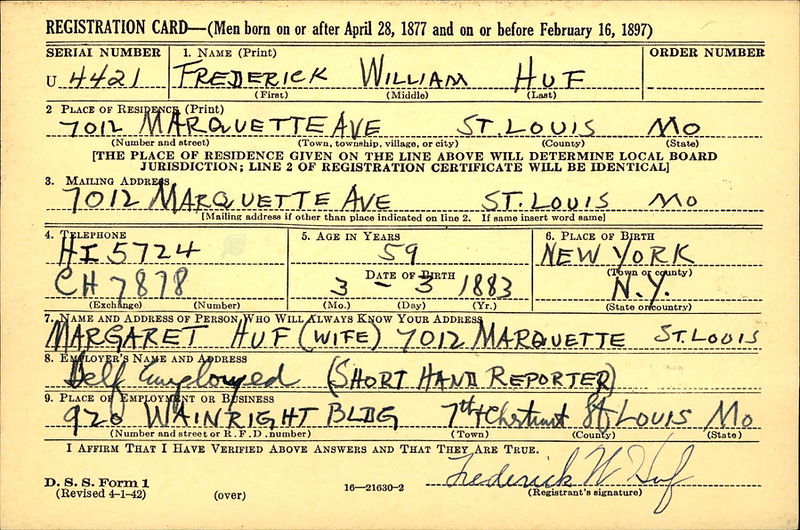 REGISTRATION CARD—(Men born on or after April 28, 1877 and on or before February 16, 1897)
SERIAL NUMBER 1. NAME (Print) ORDER NUMBER
U 4421 FREDERICK WILLIAM HUF
(First) (Middle) (Last)
2 PLACE OF RESIDENCE (Print)
7012 MARQUETTE AVE ST. LOUIS MO
(Number and street) (Town, township, village, or city) (County) (State)
[THE PLACE OF RESIDENCE GIVEN ON THE LINE ABOVE WILL DETERMINE LOCAL BOARD
JURISDICTION; LINE 2 OF REGISTRATION CERTIFICATE WILL BE IDENTICAL]
3. MAILING ADDRESS
7012 MARQUETTE AVE ST. LOUIS MO
[Mailing address if other than place indicated on line 2. If same insert word same]
4. TELEPHONE 5. AGE IN YEARS 6. PLACE OF BIRTH
HI 5724 59 NEW YORK
DATE OF BIRTH (Town or county)
CH 7878 3 - 3 1883 N.Y.
(Exchange) (Number) (Mo.) (Day) (Yr.) (State or country)
7. NAME AND ADDRESS OF PERSON WHO WILL ALWAYS KNOW YOUR ADDRESS
MARGARET HUF (WIFE) 7012 MARQUETTE ST. LOUIS
8. EMPLOYER'S NAME AND ADDRESS
Self Employed (SHORT HAND REPORTER)
9. PLACE OF EMPLOYMENT OR BUSINESS
920 WAINRIGHT BLDG 7th + Chestnut St LOUIS MO
(Number and street or R. F. D. number) (Town) (County) (State)
I AFFIRM THAT I HAVE VERIFIED ABOVE ANSWERS AND THAT THEY ARE TRUE.
Frederick W Huf
D. S. S. Form 1
(Revised 4-1-42) (over) 16—21630-2 (Registrant's signature)